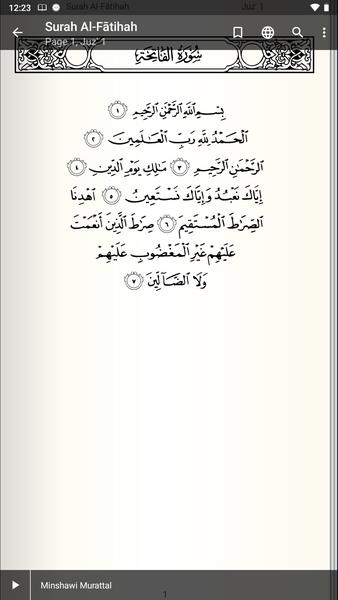 12:23
Surah Al-Fātihah Juz' 1
Surah Al-Fātihah
Page 1, Juz' 1
سُورَةُ الفَاتِحَةِ
بِسْمِ ٱللَّهِ ٱلرَّحْمَٰنِ ٱلرَّحِيمِ ١
ٱلْحَمْدُ لِلَّهِ رَبِّ ٱلْعَٰلَمِينَ ٢
ٱلرَّحْمَٰنِ ٱلرَّحِيمِ ٣ مَٰلِكِ يَوْمِ ٱلدِّينِ ٤
إِيَّاكَ نَعْبُدُ وَإِيَّاكَ نَسْتَعِينُ ٥ ٱهْدِنَا
ٱلصِّرَٰطَ ٱلْمُسْتَقِيمَ ٦ صِرَٰطَ ٱلَّذِينَ أَنْعَمْتَ
عَلَيْهِمْ غَيْرِ ٱلْمَغْضُوبِ عَلَيْهِمْ
وَلَا ٱلضَّآلِّينَ ٧
Minshawi Murattal
1